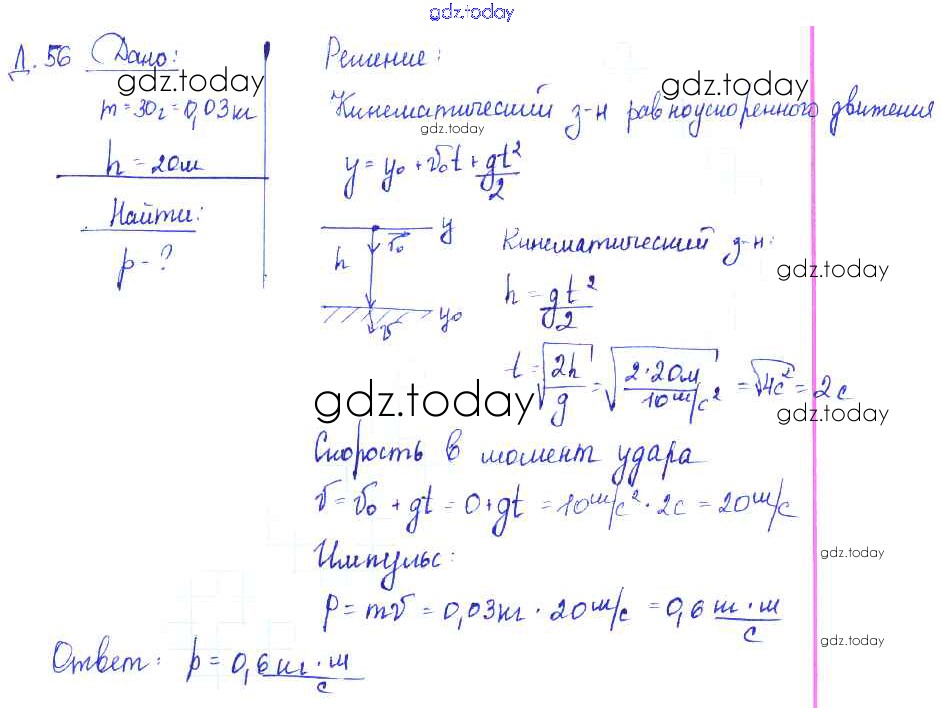 gdz.today
Д. 56 Дано:
gdz.today
m = 30г = 0,03кг
h = 20м
Найти:
p - ?
Решение:
gdz.today
Кинематический з-н равноускоренного движения
gdz.today
y = y₀ + v₀t + gt²/2
y
h
v₀
y₀
v
Кинематический з-н:
gdz.today
h = gt²/2
t = √(2h/g) = √(2·20м/10м/с²) = √4с² = 2с
gdz.today
gdz.today
Скорость в момент удара
v = v₀ + gt = 0 + gt = 10м/с² · 2с = 20м/с
Импульс:
gdz.today
p = mv = 0,03кг · 20м/с = 0,6 кг·м/с
gdz.today
Ответ: p = 0,6 кг·м/с